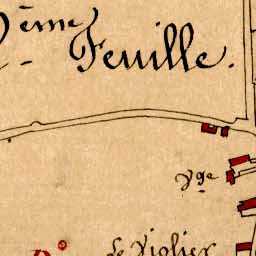 2.ème Feuille.
Vge
de Violier